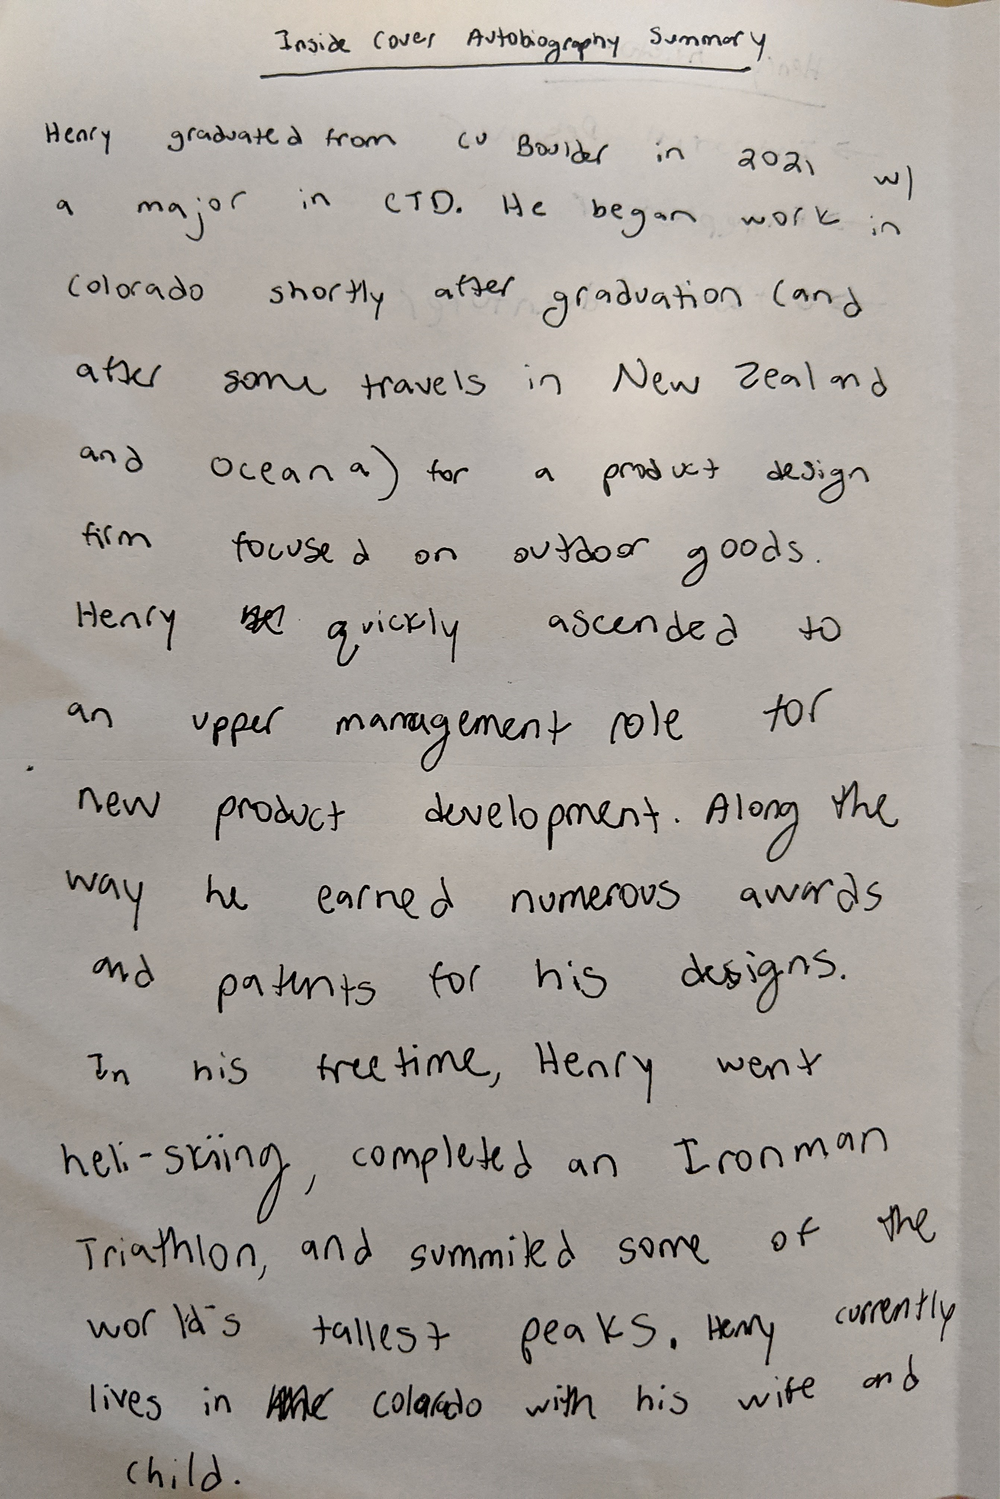 Inside Cover Autobiography Summary
Henry graduated from CU Boulder in 2021 w/
a major in CTD. He began work in
Colorado shortly after graduation (and
after some travels in New Zealand
and Oceana) for a product design
firm focused on outdoor goods.
Henry quickly ascended to
an upper management role for
new product development. Along the
way he earned numerous awards
and patents for his designs.
In his freetime, Henry went
heli-skiing, completed an Ironman
Triathlon, and summited some of the
world's tallest peaks. Henry currently
lives in Colorado with his wife and
child.